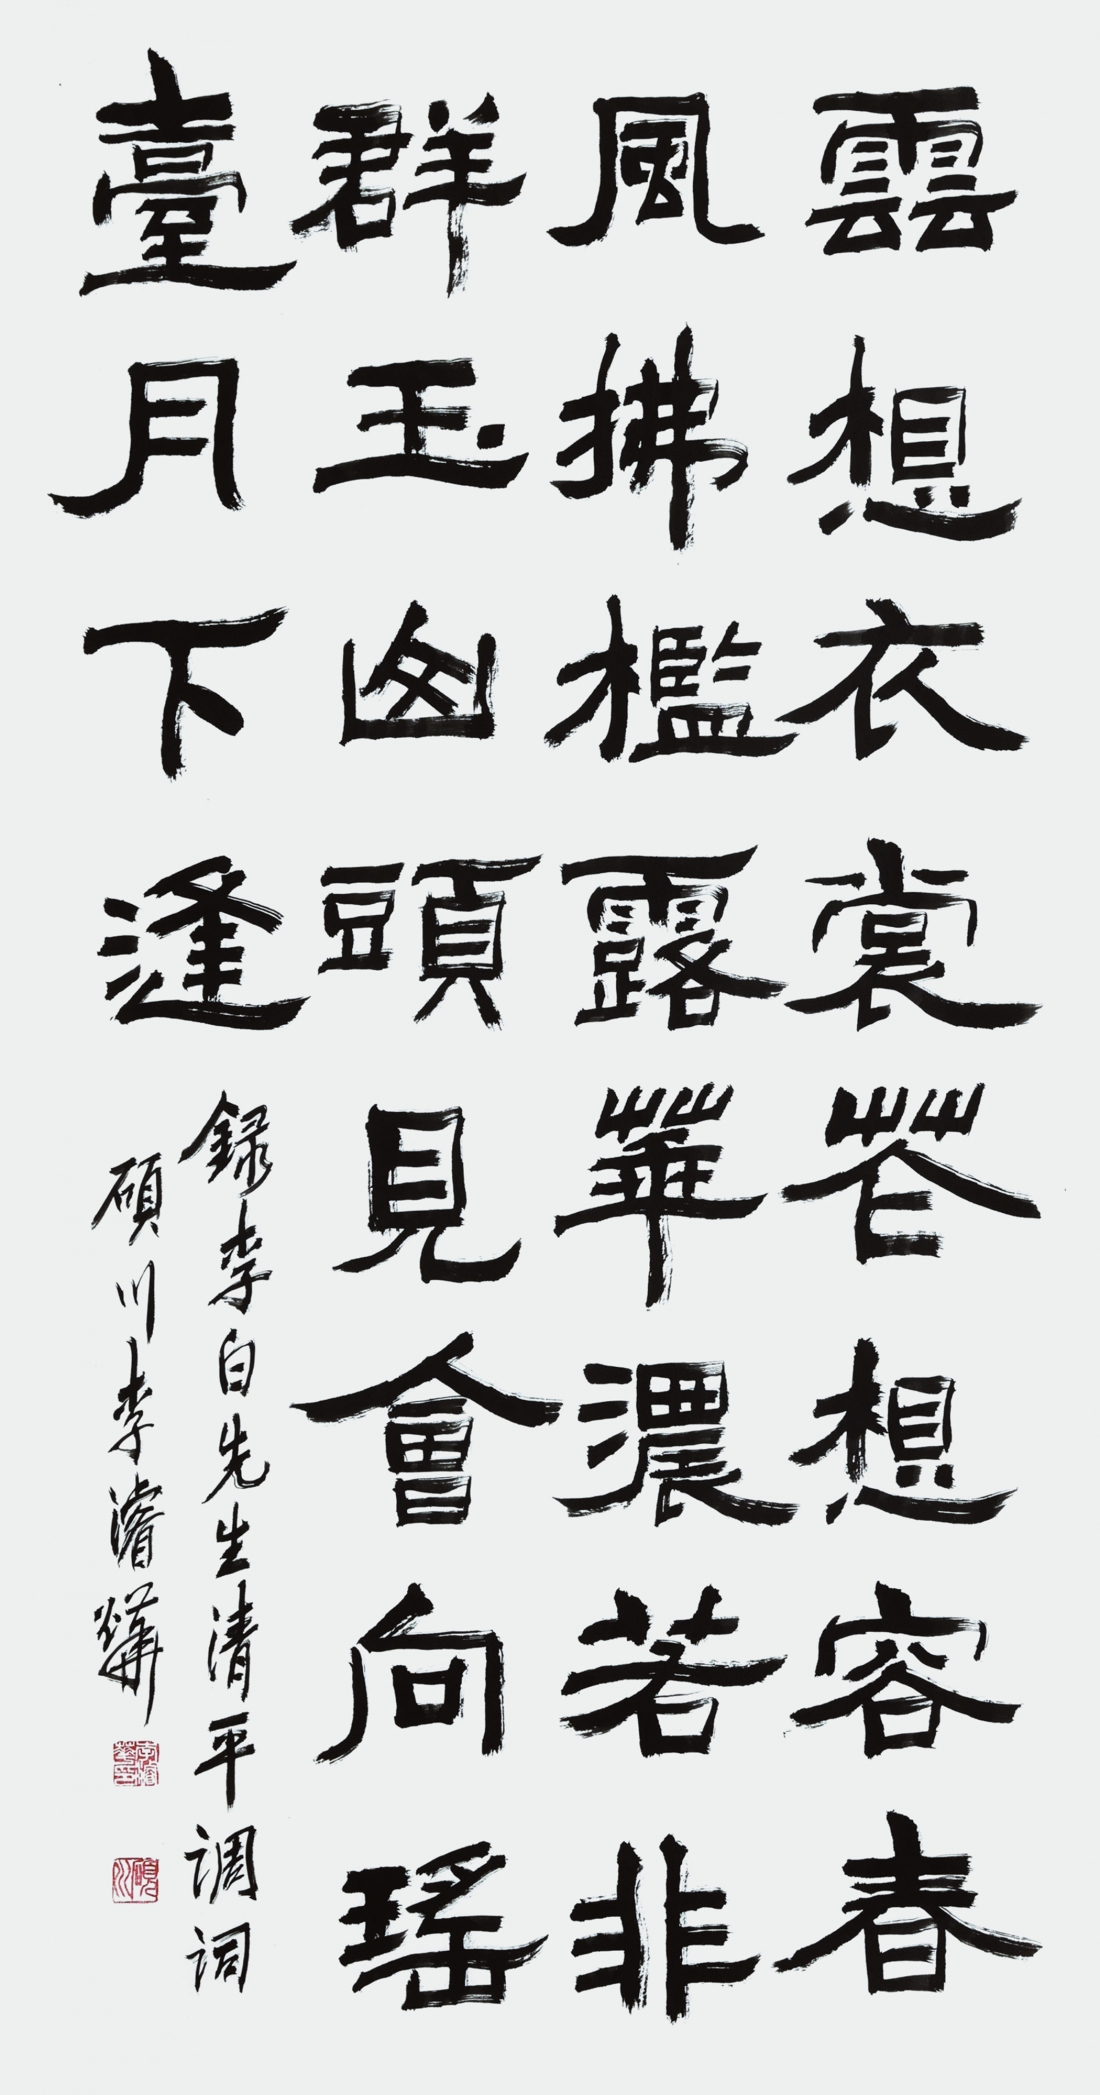 雲想衣裳花想容春
風拂檻露華濃若非
群玉山頭見會向瑤
臺月下逢
録李白先生清平调词
碩川李濬燁